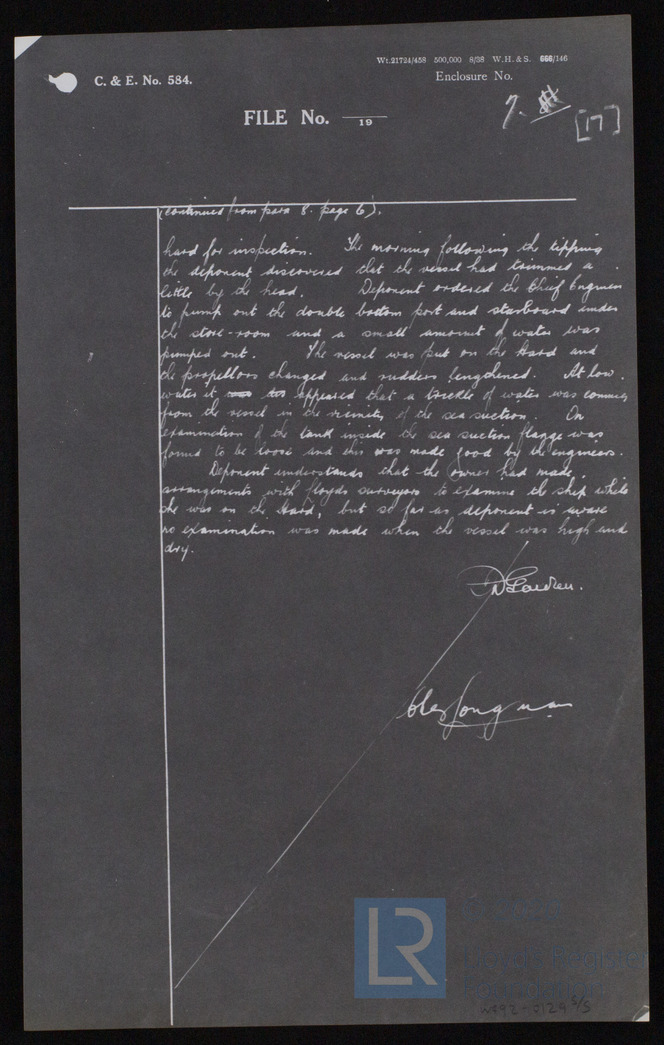 Wt.21724/458 500,000 8/38 W.H.&S. 666/146
C. & E. No. 584.
Enclosure No.
FILE No. 19
7.
[17]
(continued from para 8. page 6).
hard for inspection. The morning following the tipping
the deponent discovered that the vessel had trimmed a
little by the head. Deponent ordered the Chief Engineer
to pump out the double bottom port and starboard under
the store-room and a small amount of water was
pumped out. The vessel was put on the Hard and
the propellors changed and rudders lengthened. At low
water it appeared that a trickle of water was coming
from the vessel in the vicinity of the sea suction. On
examination of the tank inside the sea suction flange was
found to be loose and this was made good by the engineers.
Deponent understands that the owner had made
arrangements with Lloyds surveyors to examine the ship while
she was on the Hard, but so far as deponent is aware
no examination was made when the vessel was high and
dry.
LR
Lloyd's Register
Foundation
W892-0129 5/5